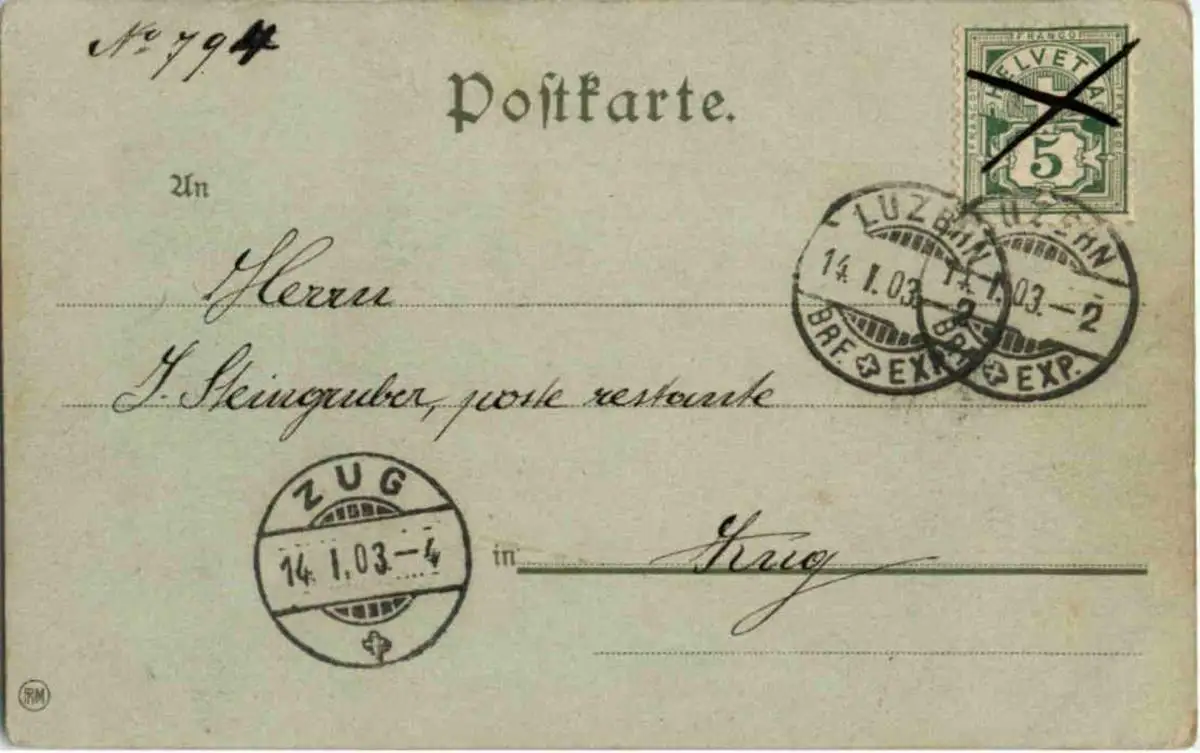 No 794
Postkarte.
FRANCO
HELVETIA
FRANCO
FRANCO
5
An
LUZERN
14. I. 03. – 2
BRF. EXP.
LUZERN
14. I. 03. – 2
BRF. EXP.
Herrn
J. Steingruber, poste restante
ZUG
14. I. 03. – 4
in Zug